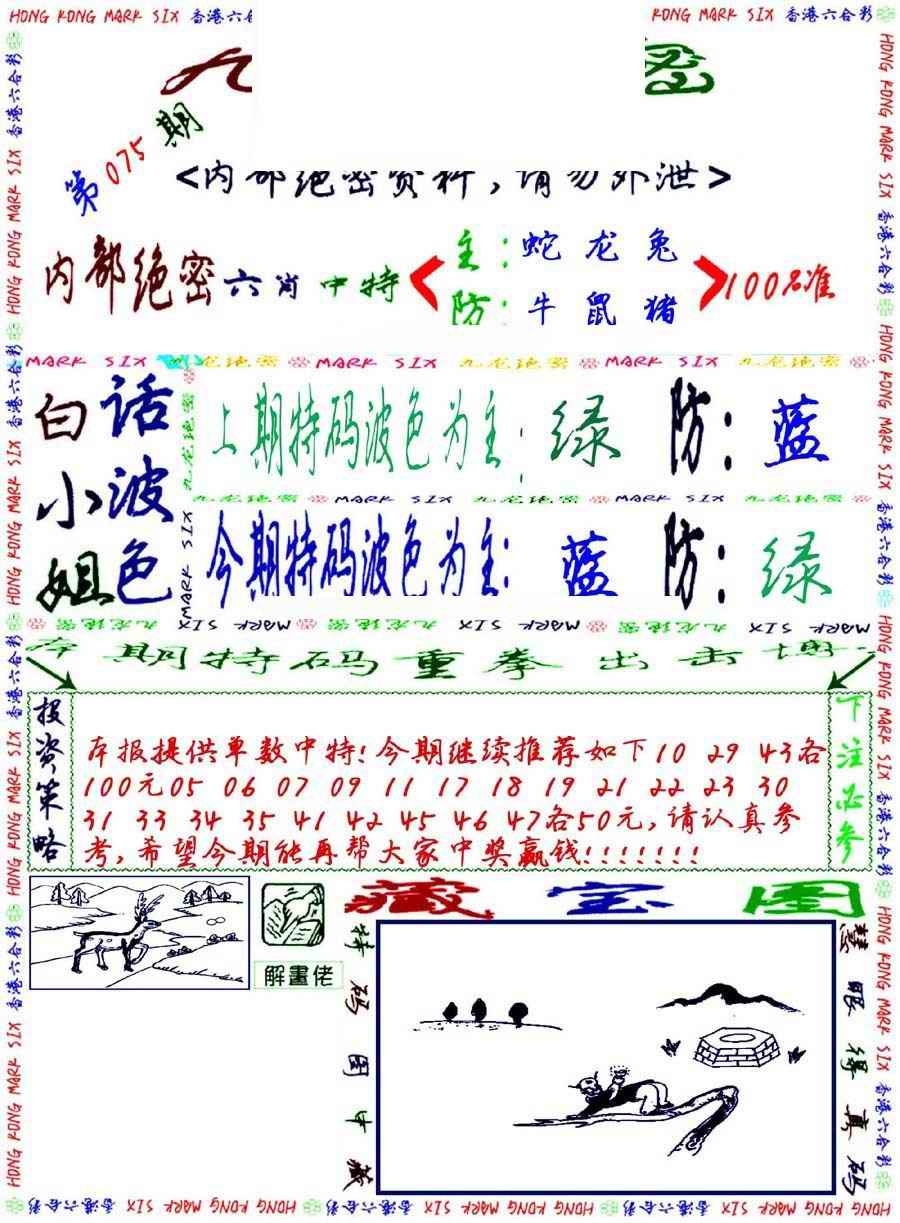 HONG KONG MARK SIX 香港六合彩
KONG MARK SIX 香港六合彩
九
第075期
<内部绝密资料,请勿外泄>
内部绝密六肖中特
主:蛇 龙 兔
防:牛 鼠 猪
100%准
MARK SIX 九龙绝密 MARK SIX 九龙绝密 MARK SIX 九龙绝密
白话
小波
姐色
上期特码波色为主:绿 防:蓝
九龙绝密 MARK SIX 九龙绝密 MARK SIX
今期特码波色为主:蓝 防:绿
MARK SIX 九龙绝密 MARK SIX 九龙绝密 MARK SIX
本期特码重拳出击
投资策略
本报提供单数中特!今期继续推荐如下10 29 43各
100元05 06 07 09 11 17 18 19 21 22 23 30
31 33 34 35 41 42 45 46 47各50元,请认真参
考,希望今期能再帮大家中奖赢钱!!!!!!!
下注必参
解畫佬
藏宝图
特码图中藏
慧眼得真码
HONG KONG MARK SIX 香港六合彩